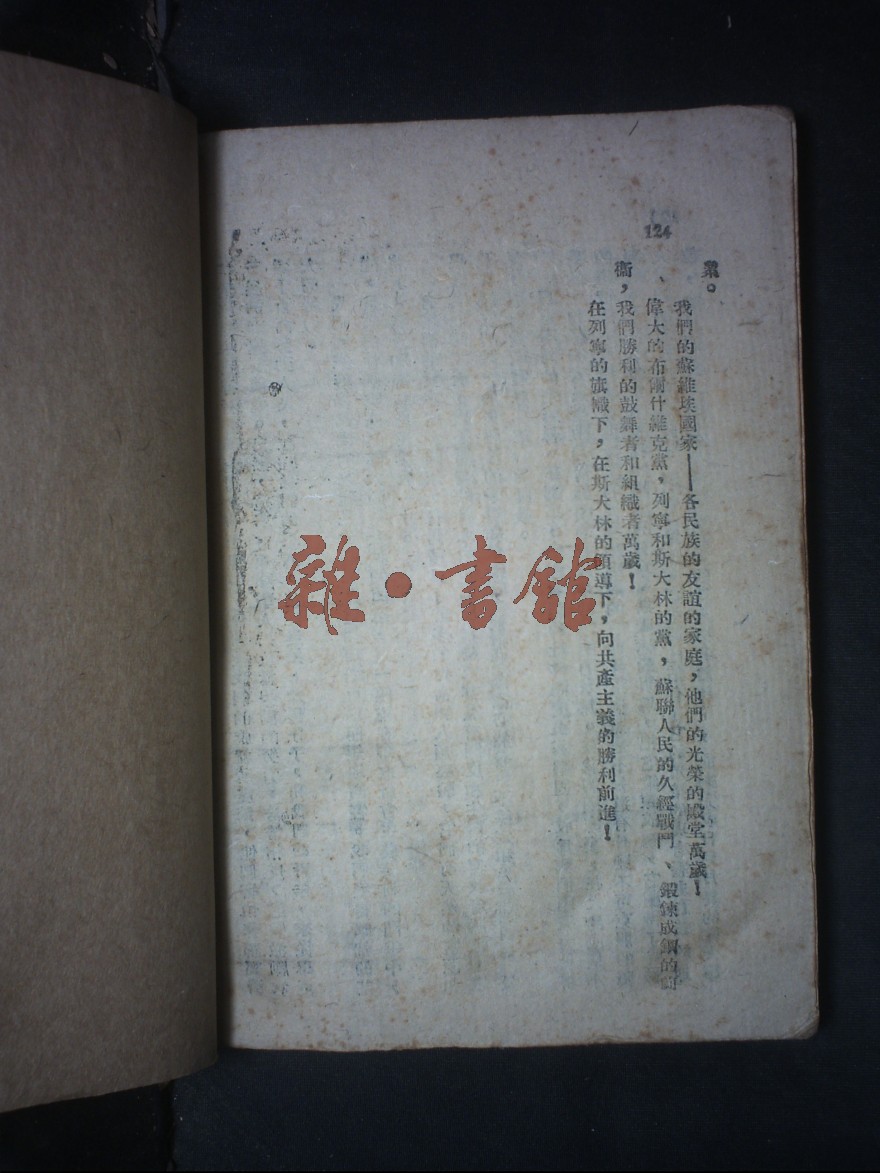 124
業。
我們的蘇維埃國家——各民族的友誼的家庭，他們的光榮的殿堂萬歲！
偉大的布爾什維克黨，列寧和斯大林的黨，蘇聯人民的久經戰鬥、鍛鍊成鋼的前
衞，我們勝利的鼓舞者和組織者萬歲！
在列寧的旗幟下，在斯大林的領導下，向共產主義的勝利前進！
雜·書館